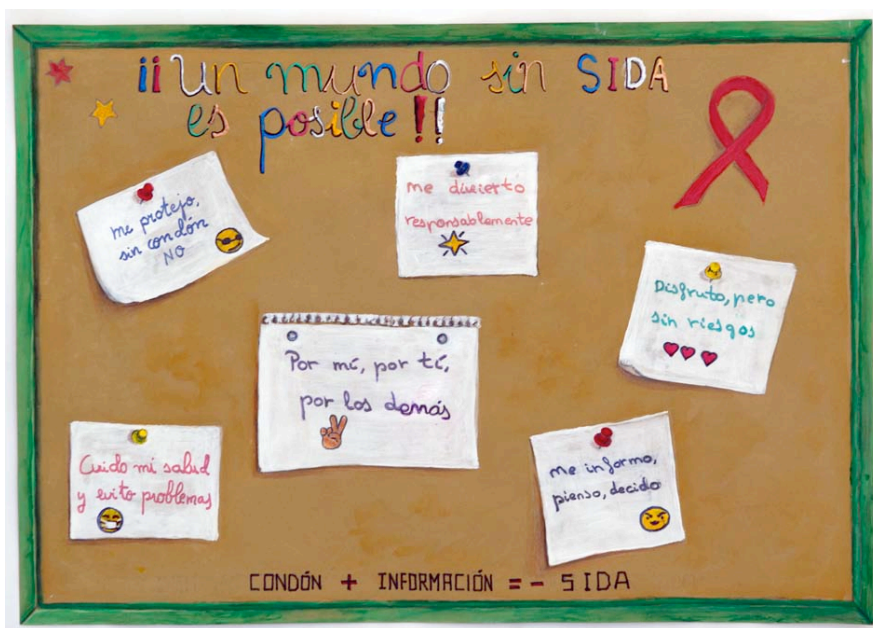 ¡¡Un mundo sin SIDA
es posible!!
me protejo,
sin condón
NO
me divierto
responsablemente
Disfruto, pero
sin riesgos
Por mí, por tí,
por los demás
Cuido mi salud
y evito problemas
me informo,
pienso, decido
CONDÓN + INFORMACIÓN = - SIDA